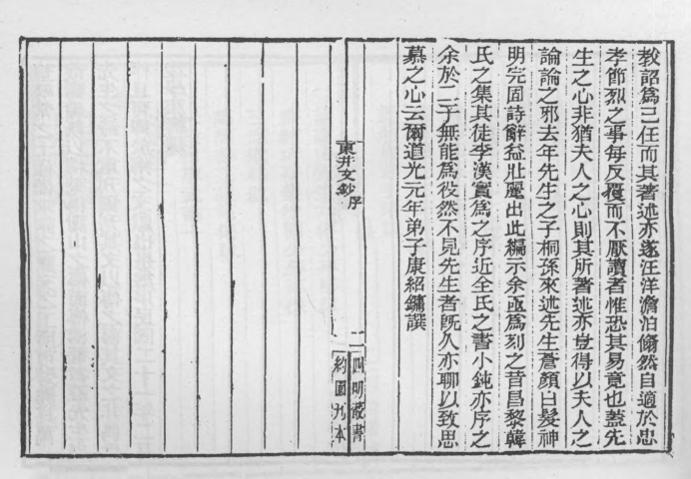 教詔為己任而其著述亦遂汪洋澹泊翛然自適於忠
孝節烈之事每反覆而不厭讀者惟恐其易竟也蓋先
生之心非猶夫人之心則其所著述亦豈得以夫人之
論論之邪去年先生之子桐孫來述先生蒼顏白髮神
明完固詩辭益壯麗出此編示余亟為刻之昔昌黎韓
氏之集其徒李漢實為之序近全氏之書小鈍亦序之
余於二子無能為役然不見先生者旣久亦聊以致思
慕之心云爾道光元年弟子康紹鏞譔
東井文鈔 序
二
四明叢書
約園刊本